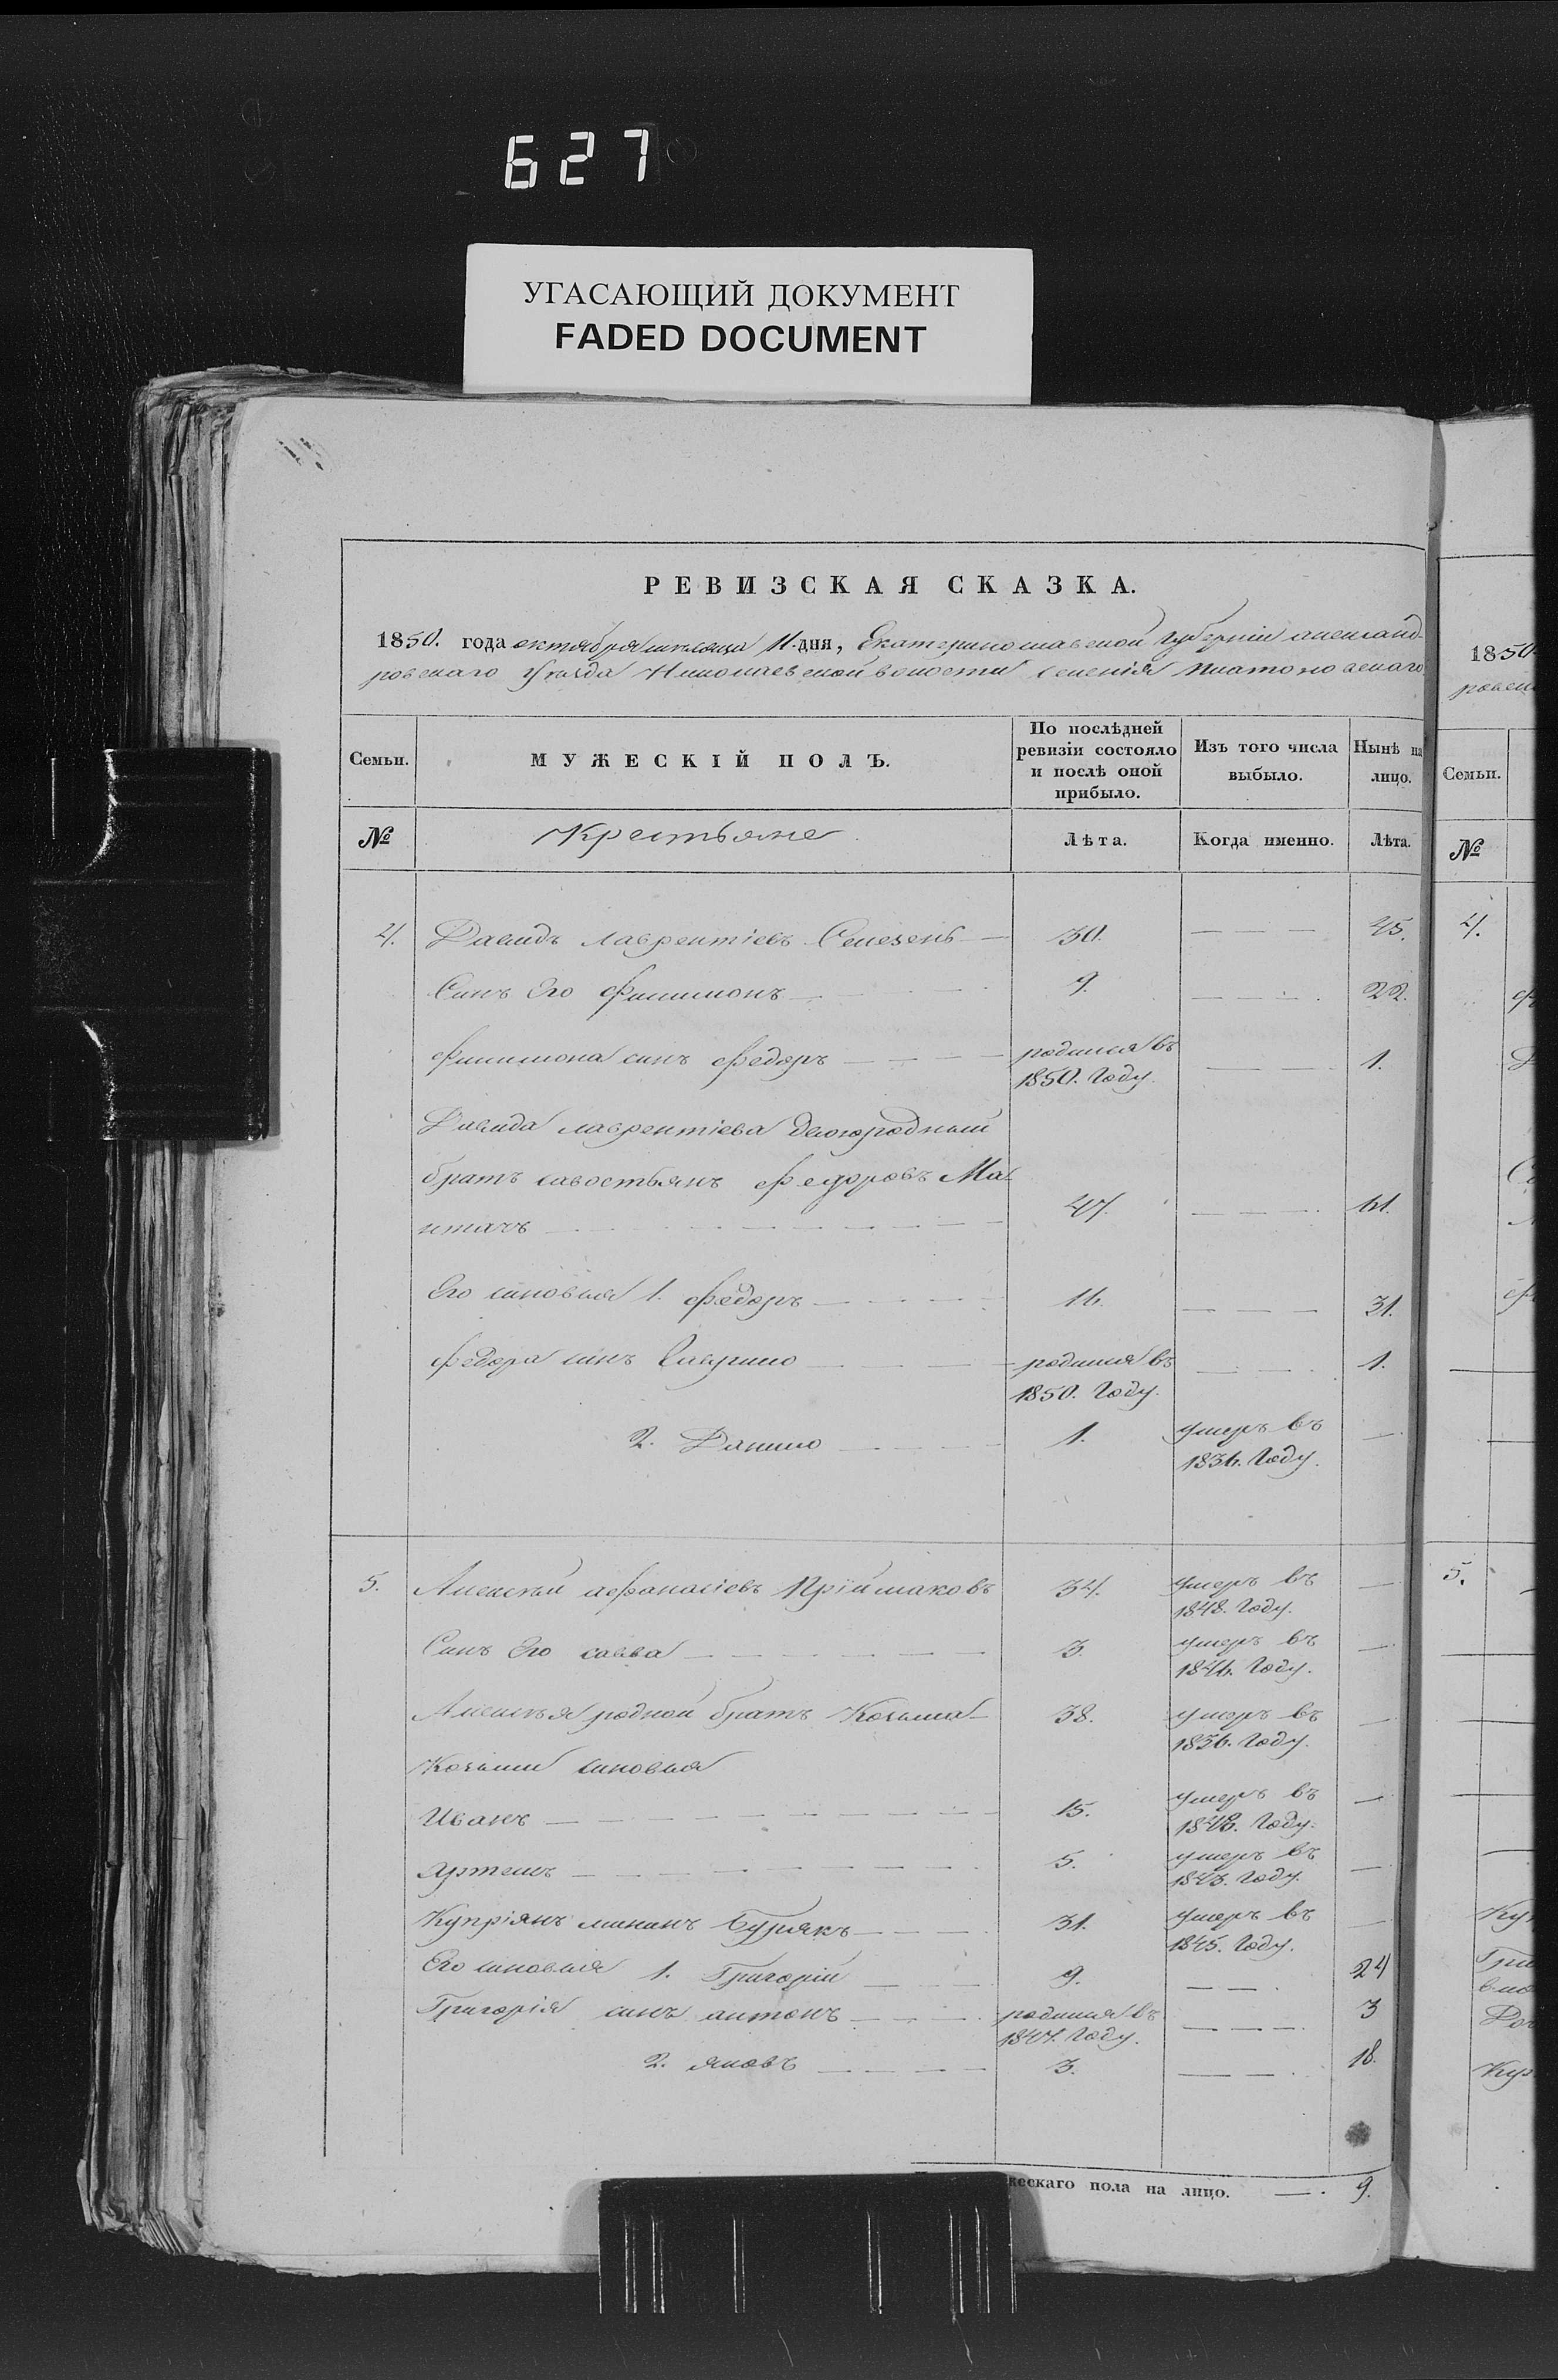 627
УГАСАЮЩИЙ ДОКУМЕНТ
FADED DOCUMENT
РЕВИЗСКАЯ СКАЗКА.
1850. года октября месяца 11. дня, Екатеринославской Губернiи александ-
ровскаго Уѣзда Николаевской волости селенiя Платоновскаго
Семьи. МУЖЕСКІЙ ПОЛЪ. По послѣдней ревизіи состояло и послѣ оной прибыло. Изъ того числа выбыло. Нынѣ на лицо.
№ Крестьяне Лѣта. Когда именно. Лѣта.
4. Давидъ лаврентіевъ Селезень 30. 45.
Синъ Его Филимонъ 9. 22.
Филимона синъ Федоръ родился въ 1850. Году. 1.
Давида лаврентіева двоюродный
братъ савостьянъ Федоровъ Ма-
47. 61.
Его синовья 1. Федоръ 16. 31.
Федора синъ Гаврило родился въ 1850. Году. 1.
2. Данило 1. умеръ въ 1836. Году.
5. Алексѣй афанасіевъ Пріймаковъ 34. умеръ въ 1848. Году.
Синъ Его савва 3. умеръ въ 1846. Году.
Алексѣя родной братъ Козьма 38. умеръ въ 1836. Году.
Козьми синовья
Иванъ 15. умеръ въ 1848. Году.
Артемъ 5. умеръ въ 1843. Году.
Купріянъ мининъ Бурякъ 31. умеръ въ 1845. Году.
Его синовья 1. Григорій 9. 24
Григорія синъ антонъ родился въ 1847. Году. 3
2. яковъ 3. 18.
жескаго пола на лицо. 9.
1850
ровск
Семьи.
№
4.
5.
Куп
Гри
Доч